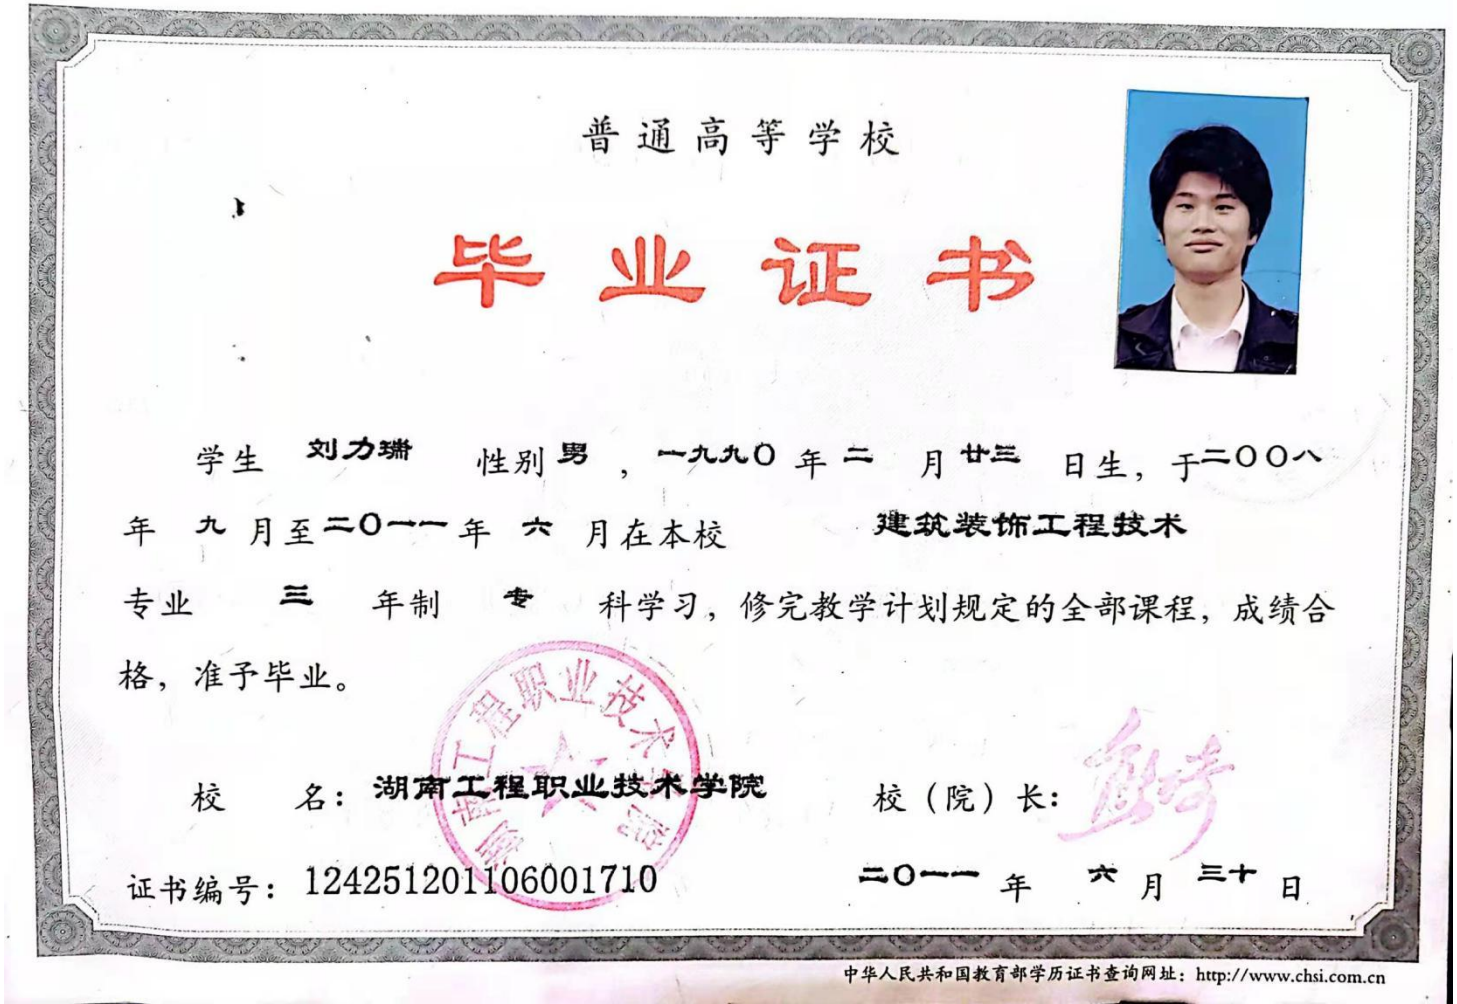 普通高等学校
毕业证书
学生 刘力瑞 性别 男 ，一九九〇 年 二 月 廿三 日生，于二〇〇八
年 九 月至二〇一一年 六 月在本校 建筑装饰工程技术
专业 三 年制 专 科学习，修完教学计划规定的全部课程，成绩合
格，准予毕业。
湖南工程职业技术学院
校 名：湖南工程职业技术学院 校（院）长：
证书编号：124251201106001710 二〇一一 年 六 月 三十 日
中华人民共和国教育部学历证书查询网址：http://www.chsi.com.cn